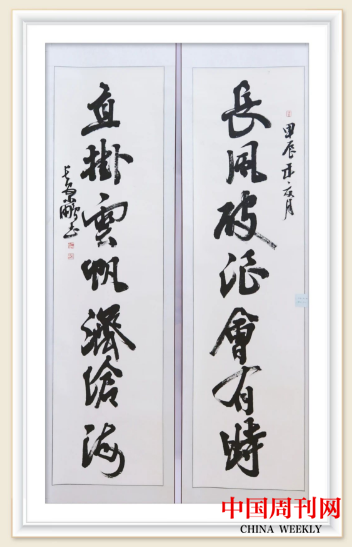 長風破浪會有時
甲辰年
直掛雲帆濟滄海
中国周刊网
CHINA WEEKLY